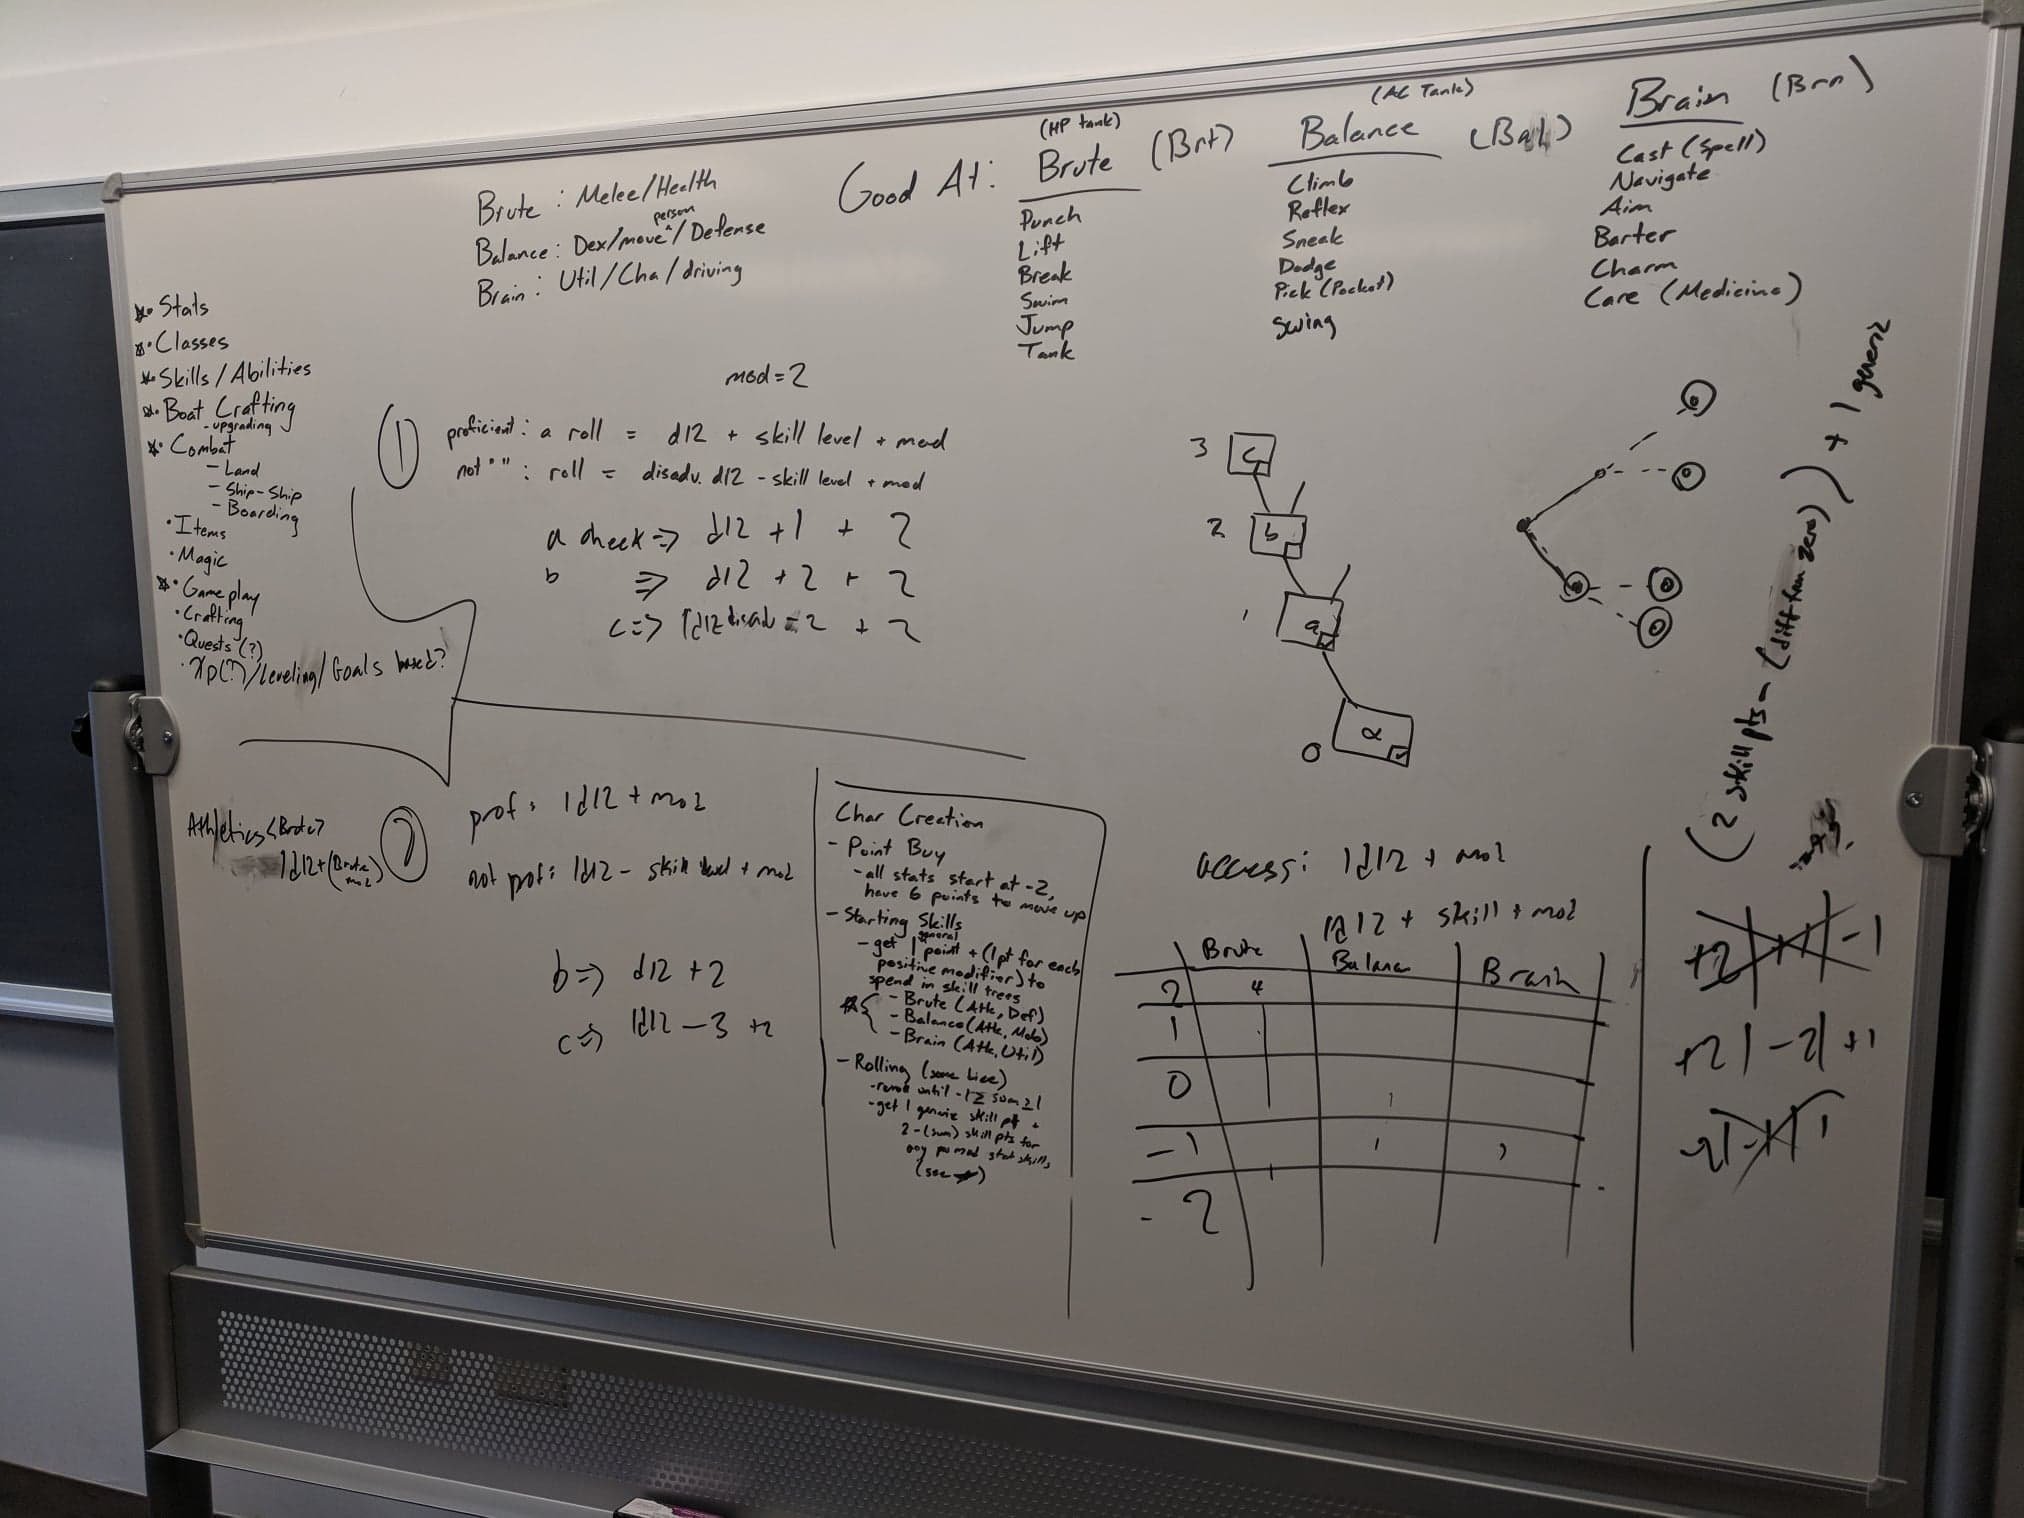 Brute : Melee/Health
person
Balance : Dex/move^/Defense
Brain : Util/Cha/driving
Good At:
(HP tank)
Brute (Brt)
Punch
Lift
Break
Swim
Jump
Tank
(AC Tank)
Balance (Bal)
Climb
Reflex
Sneak
Dodge
Pick (Pocket)
Swing
Brain (Brn)
Cast (Spell)
Navigate
Aim
Barter
Charm
Care (Medicine)
• Stats
• Classes
• Skills / Abilities
• Boat Crafting
- upgrading
• Combat
- Land
- Ship-Ship
- Boarding
• Items
• Magic
• Gameplay
• Crafting
• Quests (?)
• Xp(?)/Leveling/Goals based?
mod = 2
1
proficient: a roll = d12 + skill level + mod
not " " : roll = disadv. d12 - skill level + mod
a check => d12 + 1 + 2
b => d12 + 2 + 2
c => 1d12 disadv - 2 + 2
3 c
2 b
1 a
0 α
(2 skill pts - (diff from zero)) + 1 generic
Athletics <Brute>
1d12 + (Brute mod)
2
prof: 1d12 + mod
not prof: 1d12 - skill level + mod
b => d12 + 2
c => 1d12 - 3 + 2
Char Creation
- Point Buy
- all stats start at -2,
have 6 points to move up
- Starting Skills
general
- get 1 point + (1pt for each
positive modifier) to
spend in skill trees
- Brute (Atk, Def)
- Balance (Atk, Mob)
- Brain (Atk, Util)
- Rolling (same line)
- reroll until -1 ≥ sum ≥ 1
- get 1 generic skill pt +
2 - (sum) skill pts for
any pos mod stat skills
(see )
access: 1d12 + mod
1d12 + skill + mod
Brute Balance Brain
2 4
1
0
-1
-2
+2 | +1 | -1
+2 | -2 | +1